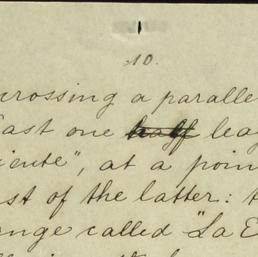 10.
crossing a paralle
east one half leag
iente", at a poin
st of the latter: t
ange called "La E